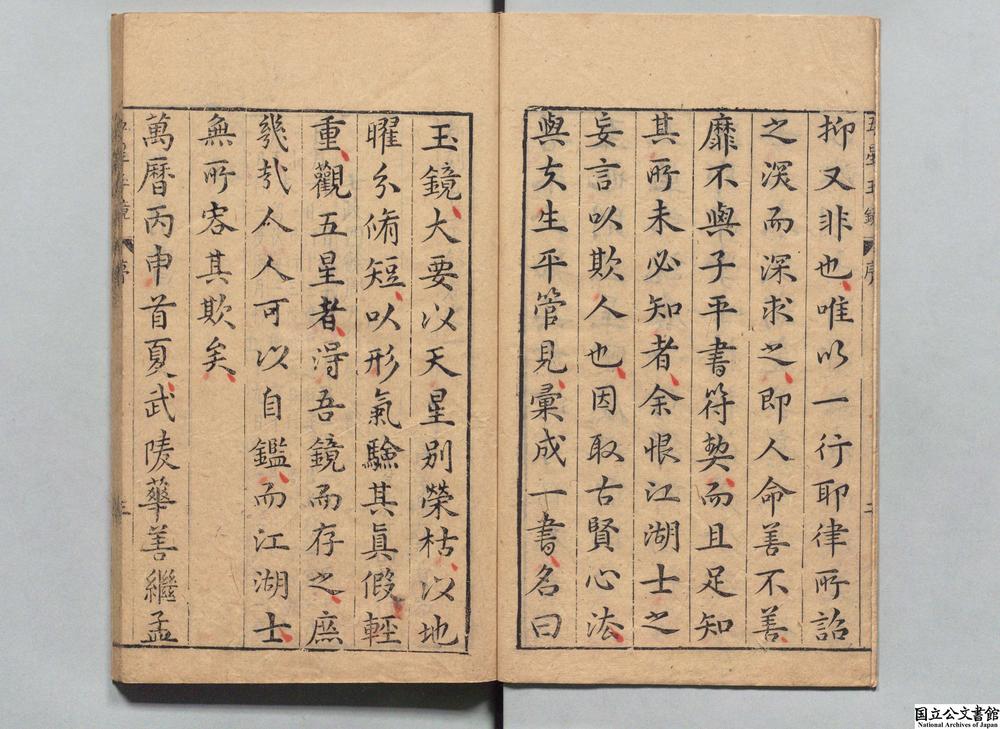 抑又非也唯以一行耶律所詒
之溪而深求之即人命善不善
靡不與子平書符契而且足知
其所未必知者余恨江湖士之
妄言以欺人也因取古賢心法
與夫生平管見彙成一書名曰
玉鏡大要以天星別榮枯以地
曜分脩短以形氣驗其眞假輕
重觀五星者得吾鏡而存之庶
幾哉人人可以自鑑而江湖士
無所容其欺矣
萬曆丙申首夏武陵華善繼孟
国立公文書館
National Archives of Japan